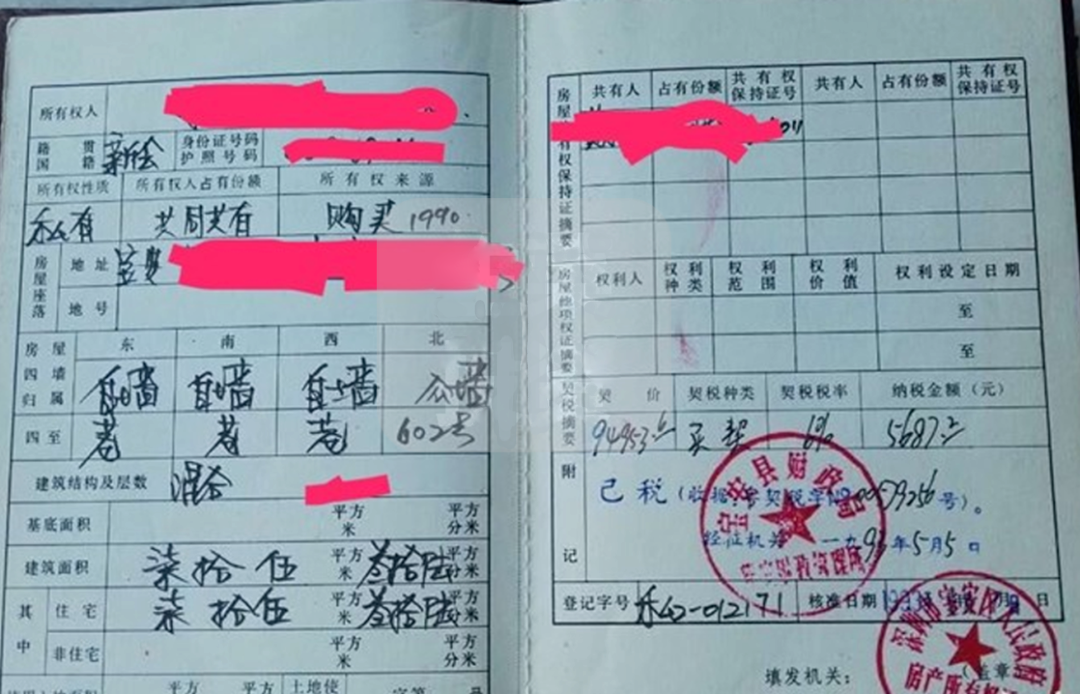 所有权人
籍贯 国籍 新会 身份证号码 护照号码
所有权性质 所有权人占有份额 所有权来源
私有 共同共有 购买 1990.
房屋座落 地址 宝安
地号
房屋 东 南 西 北
四墙归属 自墙 自墙 自墙 瓜墙
四至 巷 巷 巷 602号
建筑结构及层数 混合
基底面积 平方米 平方分米
建筑面积 柒拾伍 平方米 叁拾陆 平方分米
其中 住宅 柒拾伍 平方米 叁拾陆 平方分米
非住宅 平方米 平方分米
平方 平方 土地使 字第 号
房屋共有权保持证摘要 共有人 占有份额 共有权保持证号 共有人 占有份额 共有权保持证号
房屋他项权证摘要 权利人 权利种类 权利范围 权利价值 权利设定日期
至
至
契税摘要 契价 契税种类 契税税率 纳税金额（元）
买契 6%
附记 已税（收据 字 号）。
经征机关 一九 年5月5日
宝安县财政局
登记字号 私公-012171 核准日期 日
填发机关： 盖章